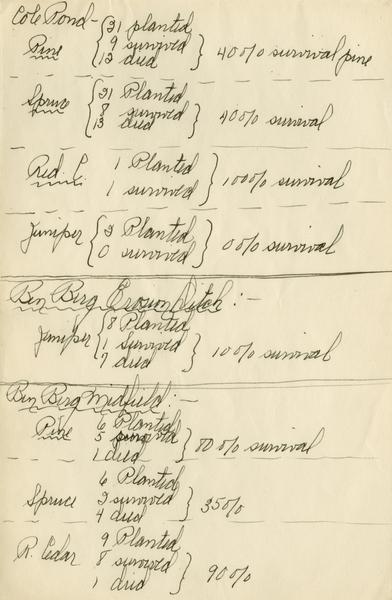 Cole Pond -
Pine { 21 planted
9 survived
12 died } 40% survival pine
Spruce { 21 Planted
8 survived
13 died } 40% survival
Red C. 1 Planted
1 survived } 100% survival
Juniper { 2 Planted
0 survived } 0% survival
Ben Berg Erosion Ditch : -
Juniper { 8 Planted
1 survived
7 died } 10% survival
Ben Berg Midfield : -
Pine 6 Planted
5 survived
1 died } 80% survival
Spruce 6 Planted
2 survived
4 died } 35%
R. Cedar 9 Planted
8 survived
1 died } 90%